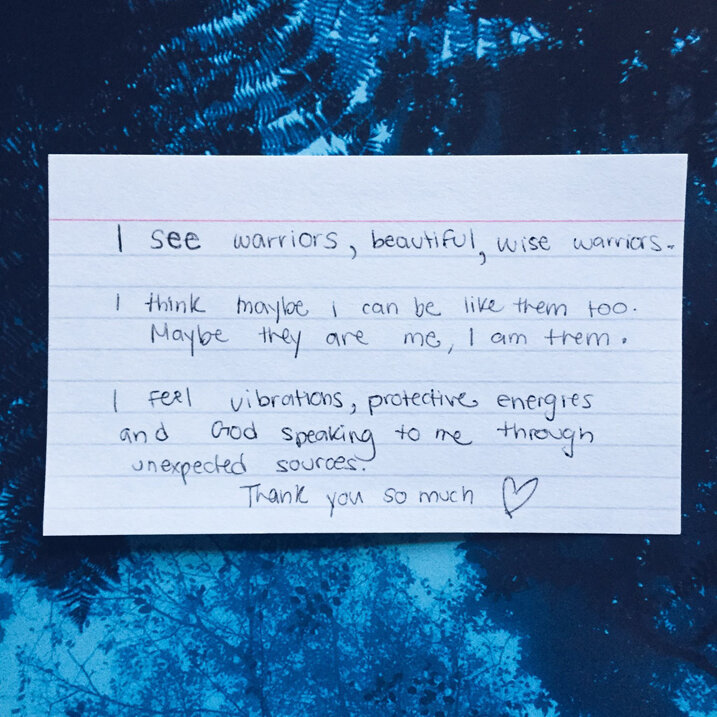 I see warriors, beautiful, wise warriors.
I think maybe i can be like them too.
Maybe they are me, I am them.
I feel vibrations, protective energies
and God speaking to me through
unexpected sources.
Thank you so much ♡